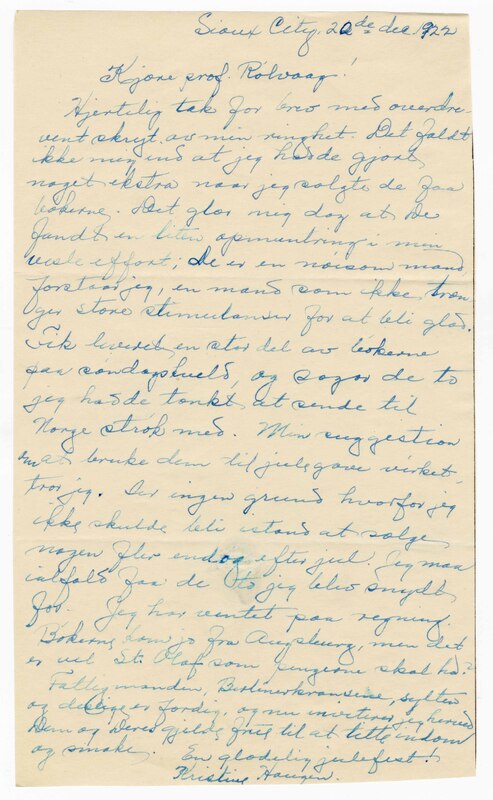 Sioux City, 20de dec. 1922
Kjære prof. Rölvaag!
Hjertelig tak for brev med overdre-
vent skryt av min ringhet. Det faldt
ikke mig ind at jeg hadde gjort
noget ekstra naar jeg solgte de faa
bökerne. Det glær mig dog at De
fandt en liten opmuntring i min
vesle effort; De er en nöisom mand
forstaar jeg, en mand som ikke træn-
ger store stimulanser for at bli glad.
Fik levert en stor del av bökerne
paa söndagskveld, og sogar de to
jeg hadde tænkt at sende til
Norge strök med. Min suggestion
om at bruke dem til julegave virket,
tror jeg. Ser ingen grund hvorfor jeg
ikke skulde bli istand at sælge
nogen fler endog efter jul. Jeg maa
ialfald faa de to jeg blev snydt
for. Jeg har ventet paa regning.
Bökerne kom jo fra Augsburg, men det
er vel St. Olaf som pengene skal ha?
Fattigmanden, Berlinerkransene, sylten
og deslige er færdig, og nu inviterer jeg herved
Dem og Deres gjilde frue til at titte indom
og smake. En glædelig julefest!
Kristine Haugen.